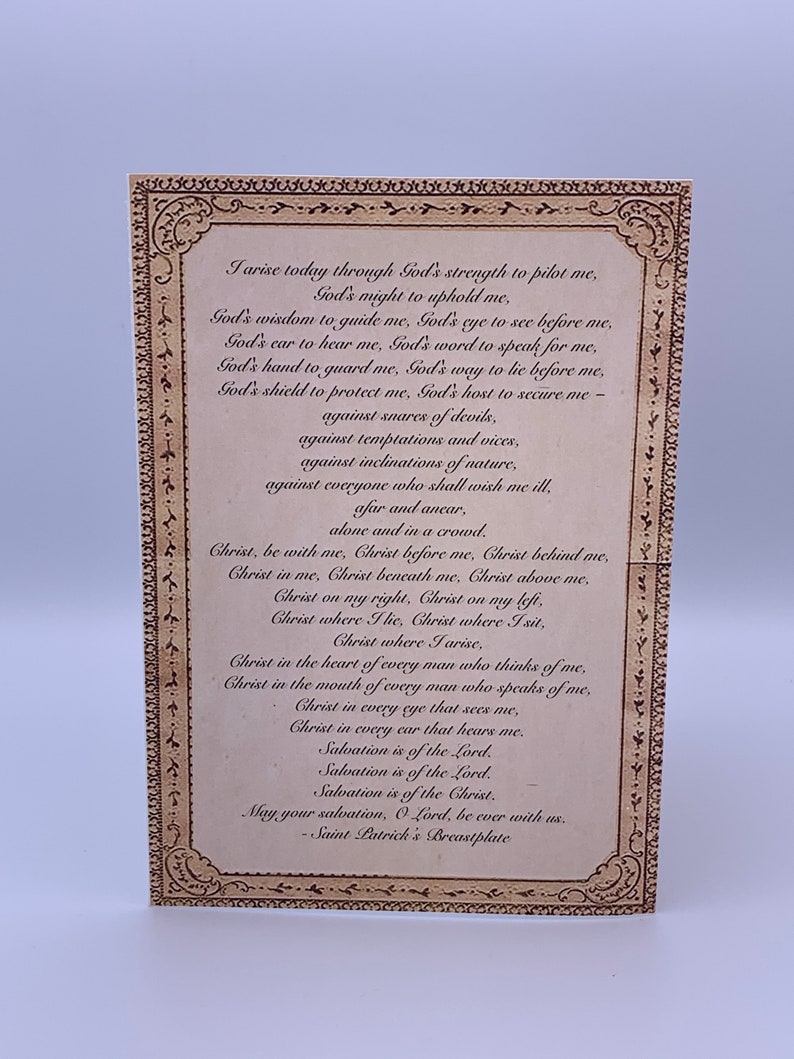 I arise today through God's strength to pilot me,
God's might to uphold me,
God's wisdom to guide me, God's eye to see before me,
God's ear to hear me, God's word to speak for me,
God's hand to guard me, God's way to lie before me,
God's shield to protect me, God's host to secure me –
against snares of devils,
against temptations and vices,
against inclinations of nature,
against everyone who shall wish me ill,
afar and anear,
alone and in a crowd.
Christ, be with me, Christ before me, Christ behind me,
Christ in me, Christ beneath me, Christ above me,
Christ on my right, Christ on my left,
Christ where I lie, Christ where I sit,
Christ where I arise,
Christ in the heart of every man who thinks of me,
Christ in the mouth of every man who speaks of me,
Christ in every eye that sees me,
Christ in every ear that hears me.
Salvation is of the Lord.
Salvation is of the Lord.
Salvation is of the Christ.
May your salvation, O Lord, be ever with us.
- Saint Patrick's Breastplate